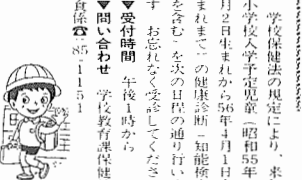 学校保健法の規定により、来
小学校入学予定児童（昭和55年
月2日生まれから56年4月1日
まれまで）の健康診断（知能検
を含む）を次の日程の通り行い
す　お忘れなく受診してくださ
▼受付時間　午後1時から
▼問い合わせ　学校教育課保健
食係☎85-1151